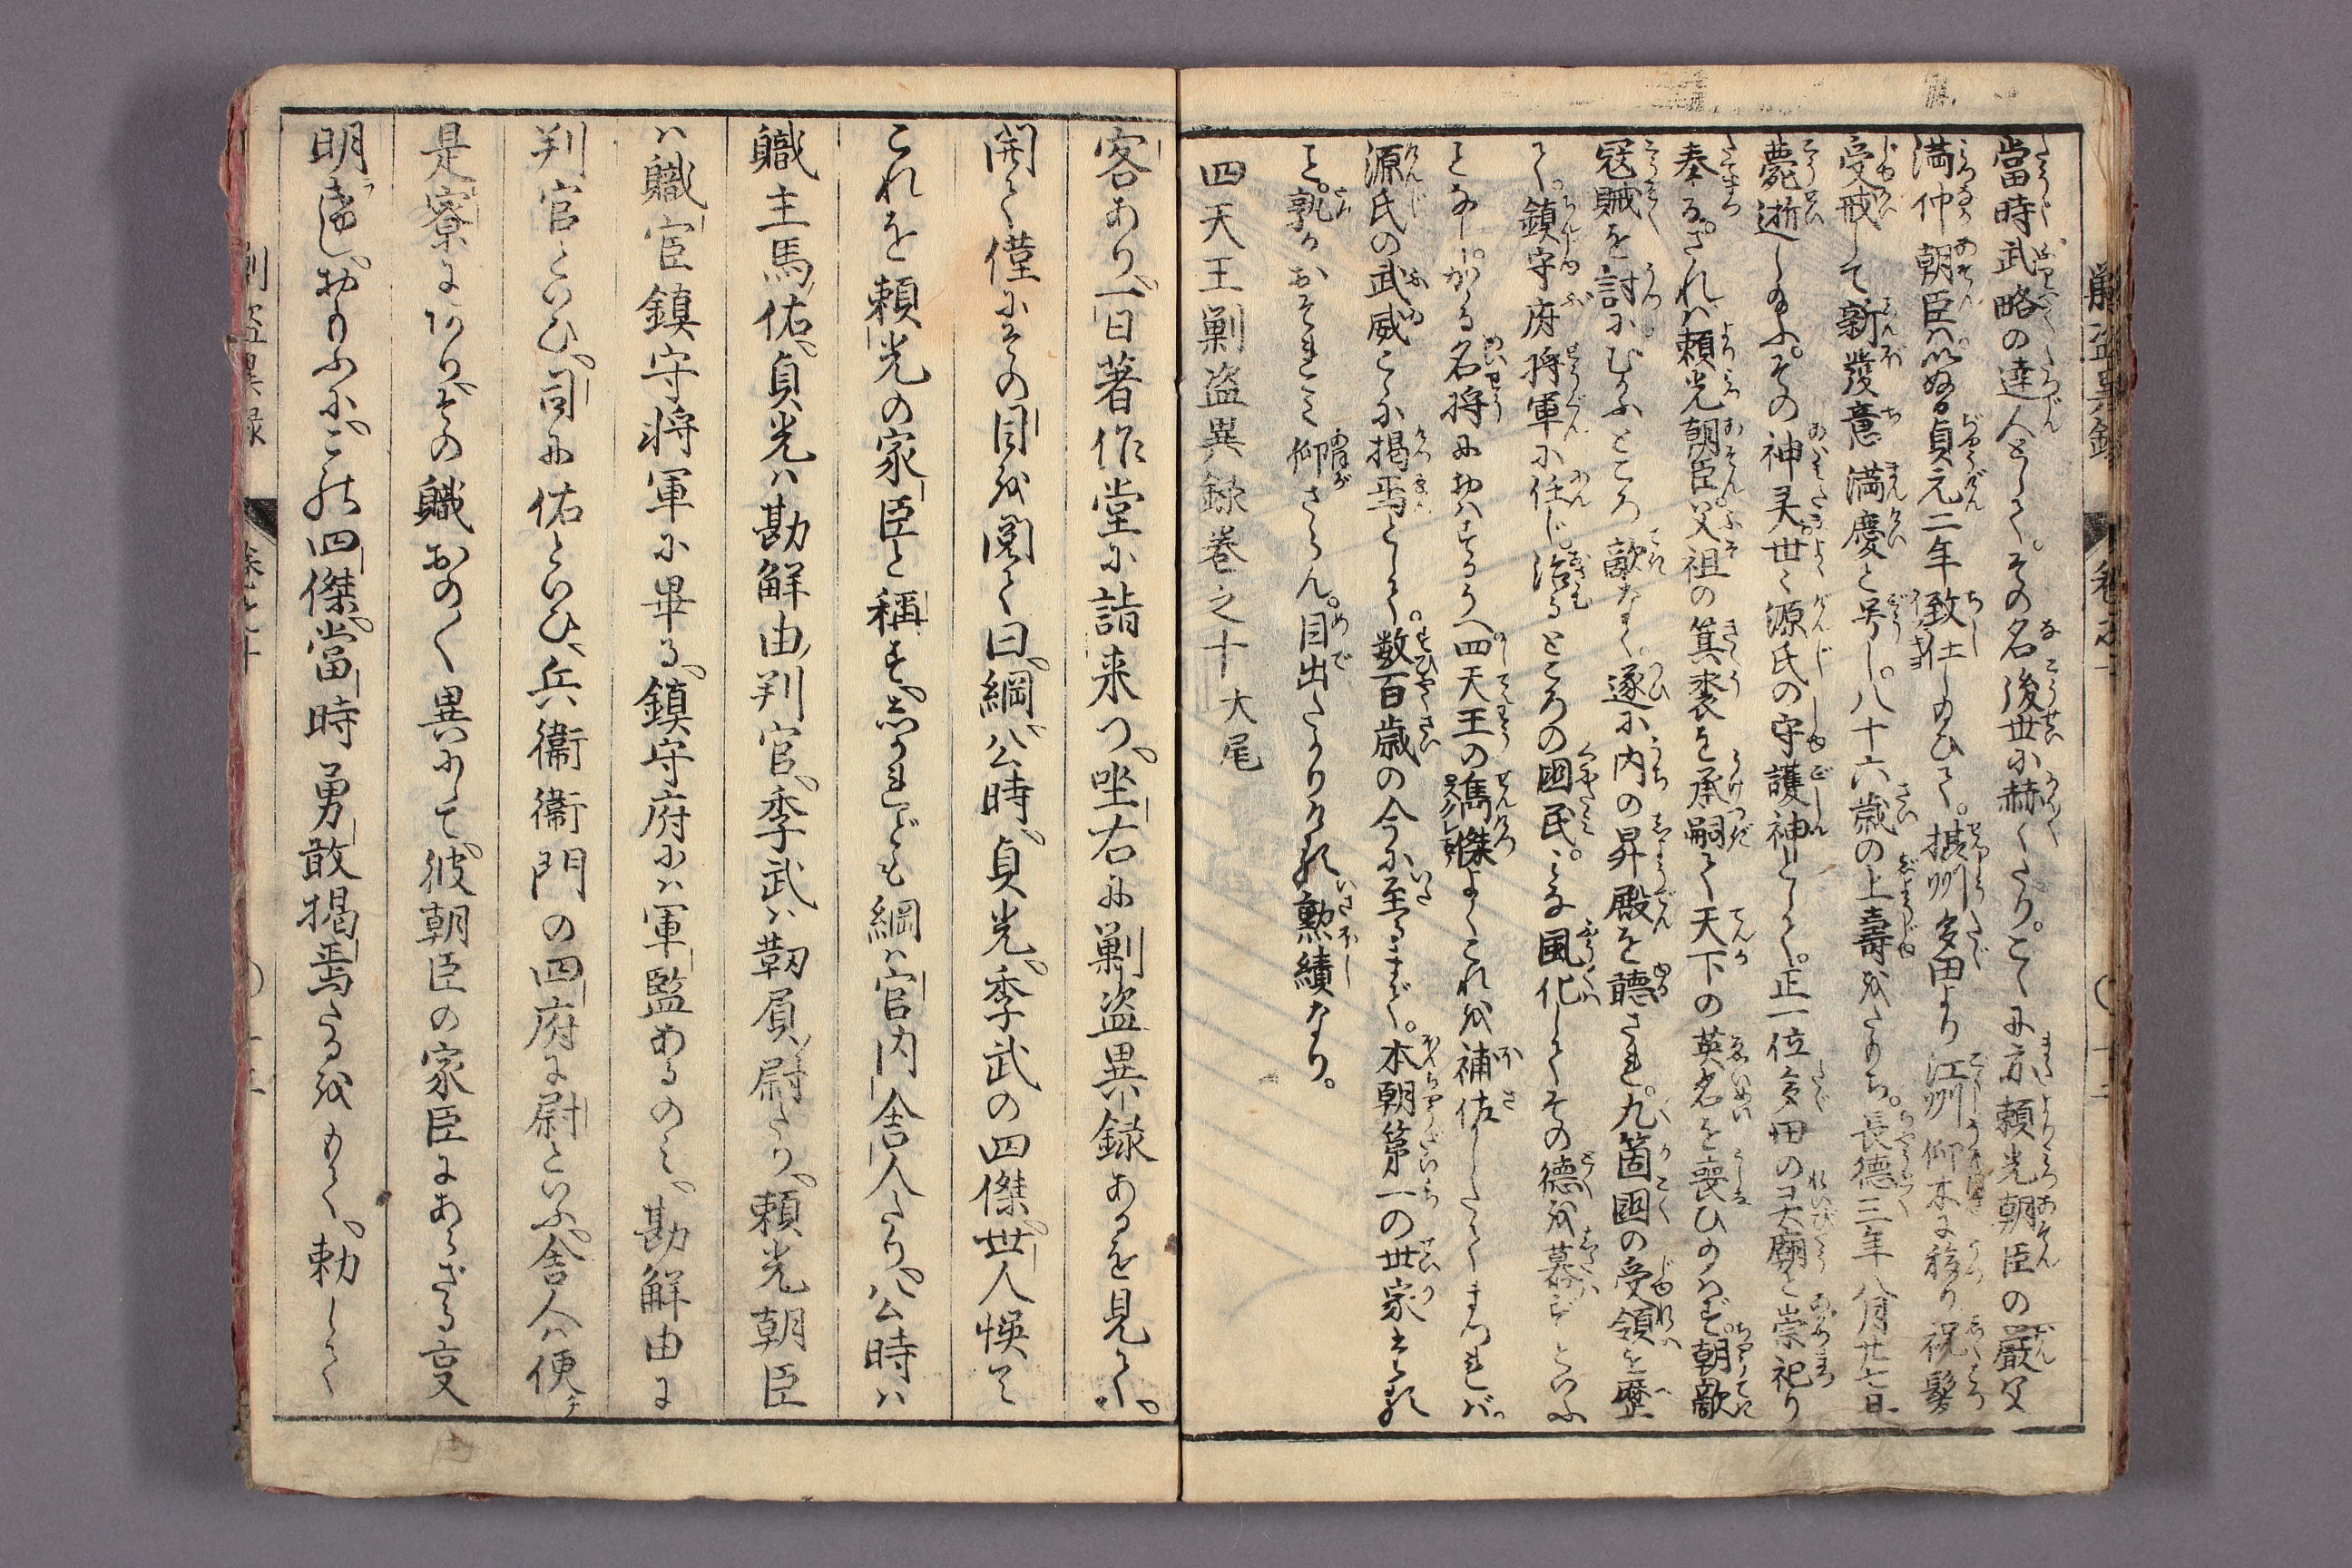 當時武略の達人として。その名後世に赫〱たり。こゝに亦頼光朝臣の嚴父
満仲朝臣ハ貞元二年致仕し給ひて。摂州多田より江州仰木に移り祝髪
受戒して新發意満慶と号し。八十六歳の上壽をたもち。長德三年八月廿七日
薨逝し給ふ。その神灵。世〻源氏の守護神として。正一位多田の灵廟と崇祀り
奉る。されバ頼光朝臣。父祖の箕裘を承嗣て天下の英名を喪ひ給ハず。朝敵
冦賊を討にむかふところ敵なく。遂に内の昇殿を聴され。九箇國の受領を歴
て。鎮守府将軍に任じ。治るところの國民。みな風化してその德を慕ずといふ
となし。かゝる名将におハするうへ四天王の㑺傑よくこれを補佐したてまつれバ。
源氏の武威こゝに掲焉として。数百歳の今に至るまで。本朝第一の世家たる
こと。孰かおそれみ仰ざらん。目出たかりける勲績なり。
四天王剿盗異録巻之十大尾
客あり。一日著作堂に詣来つ。坐右に剿盗異録あるを見て。
開て僅にその目を閲て曰。綱。公時。貞光。季武の四傑。世人悞て
これを頼光の家臣と稱す。しかれども綱ハ官内舎人たり。公時ハ
軄主馬佑。貞光ハ勘解由判官。季武ハ靱負尉たり。頼光朝臣
ハ軄官鎮守将軍に畢る。鎮守府にハ軍監あるのミ。勘解由に
判官といひ。司に佑といひ、兵衞衞門の四府に尉といふ。舎人ハ便チ
是寮にあり。その軄おの〱異にして。彼朝臣の家臣にあらざる㕝
明けし。おもふに。この四傑。當時勇敢掲焉たるをもて。勅して
剿盗異録
巻之十